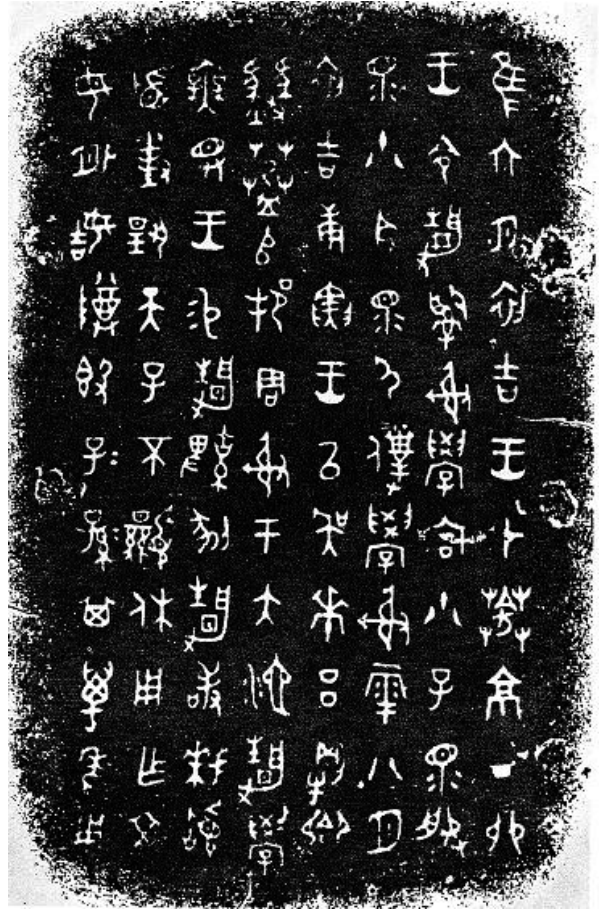 隹六月初吉王才𦱤京丁卯
王令靜𤔲射學宮小子眔服
眔小臣眔尸僕學射雩八月
初吉庚寅王㠯吳𠦪吕㓝卿
𦱤𠂤邦周射于大池靜學
無王易靜鞞靜敢拜𩒨
首對揚天子不顯休用乍文
母外姞𣪘子孫其萬年用